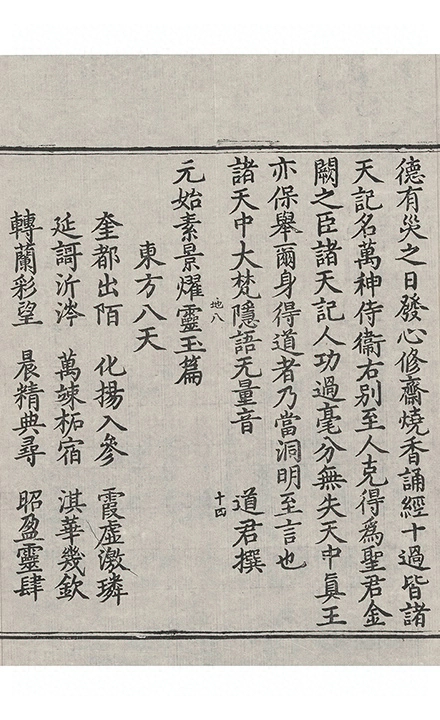 德有災之日發心修齋燒香誦經十過皆諸
天記名萬神侍衞右別至人克得爲聖君金
闕之臣諸天記人功過毫分無失天中眞王
亦保舉爾身得道者乃當洞明至言也
諸天中大梵隱語无量音 道君撰
地八 十四
元始素景燿靈玉篇
東方八天
奎都出陌 化揚入參 霞虛激璘
延謌沂涔 萬竦柘宿 淇華幾欽
轉蘭彩望 晨精典尋 昭盈靈肆